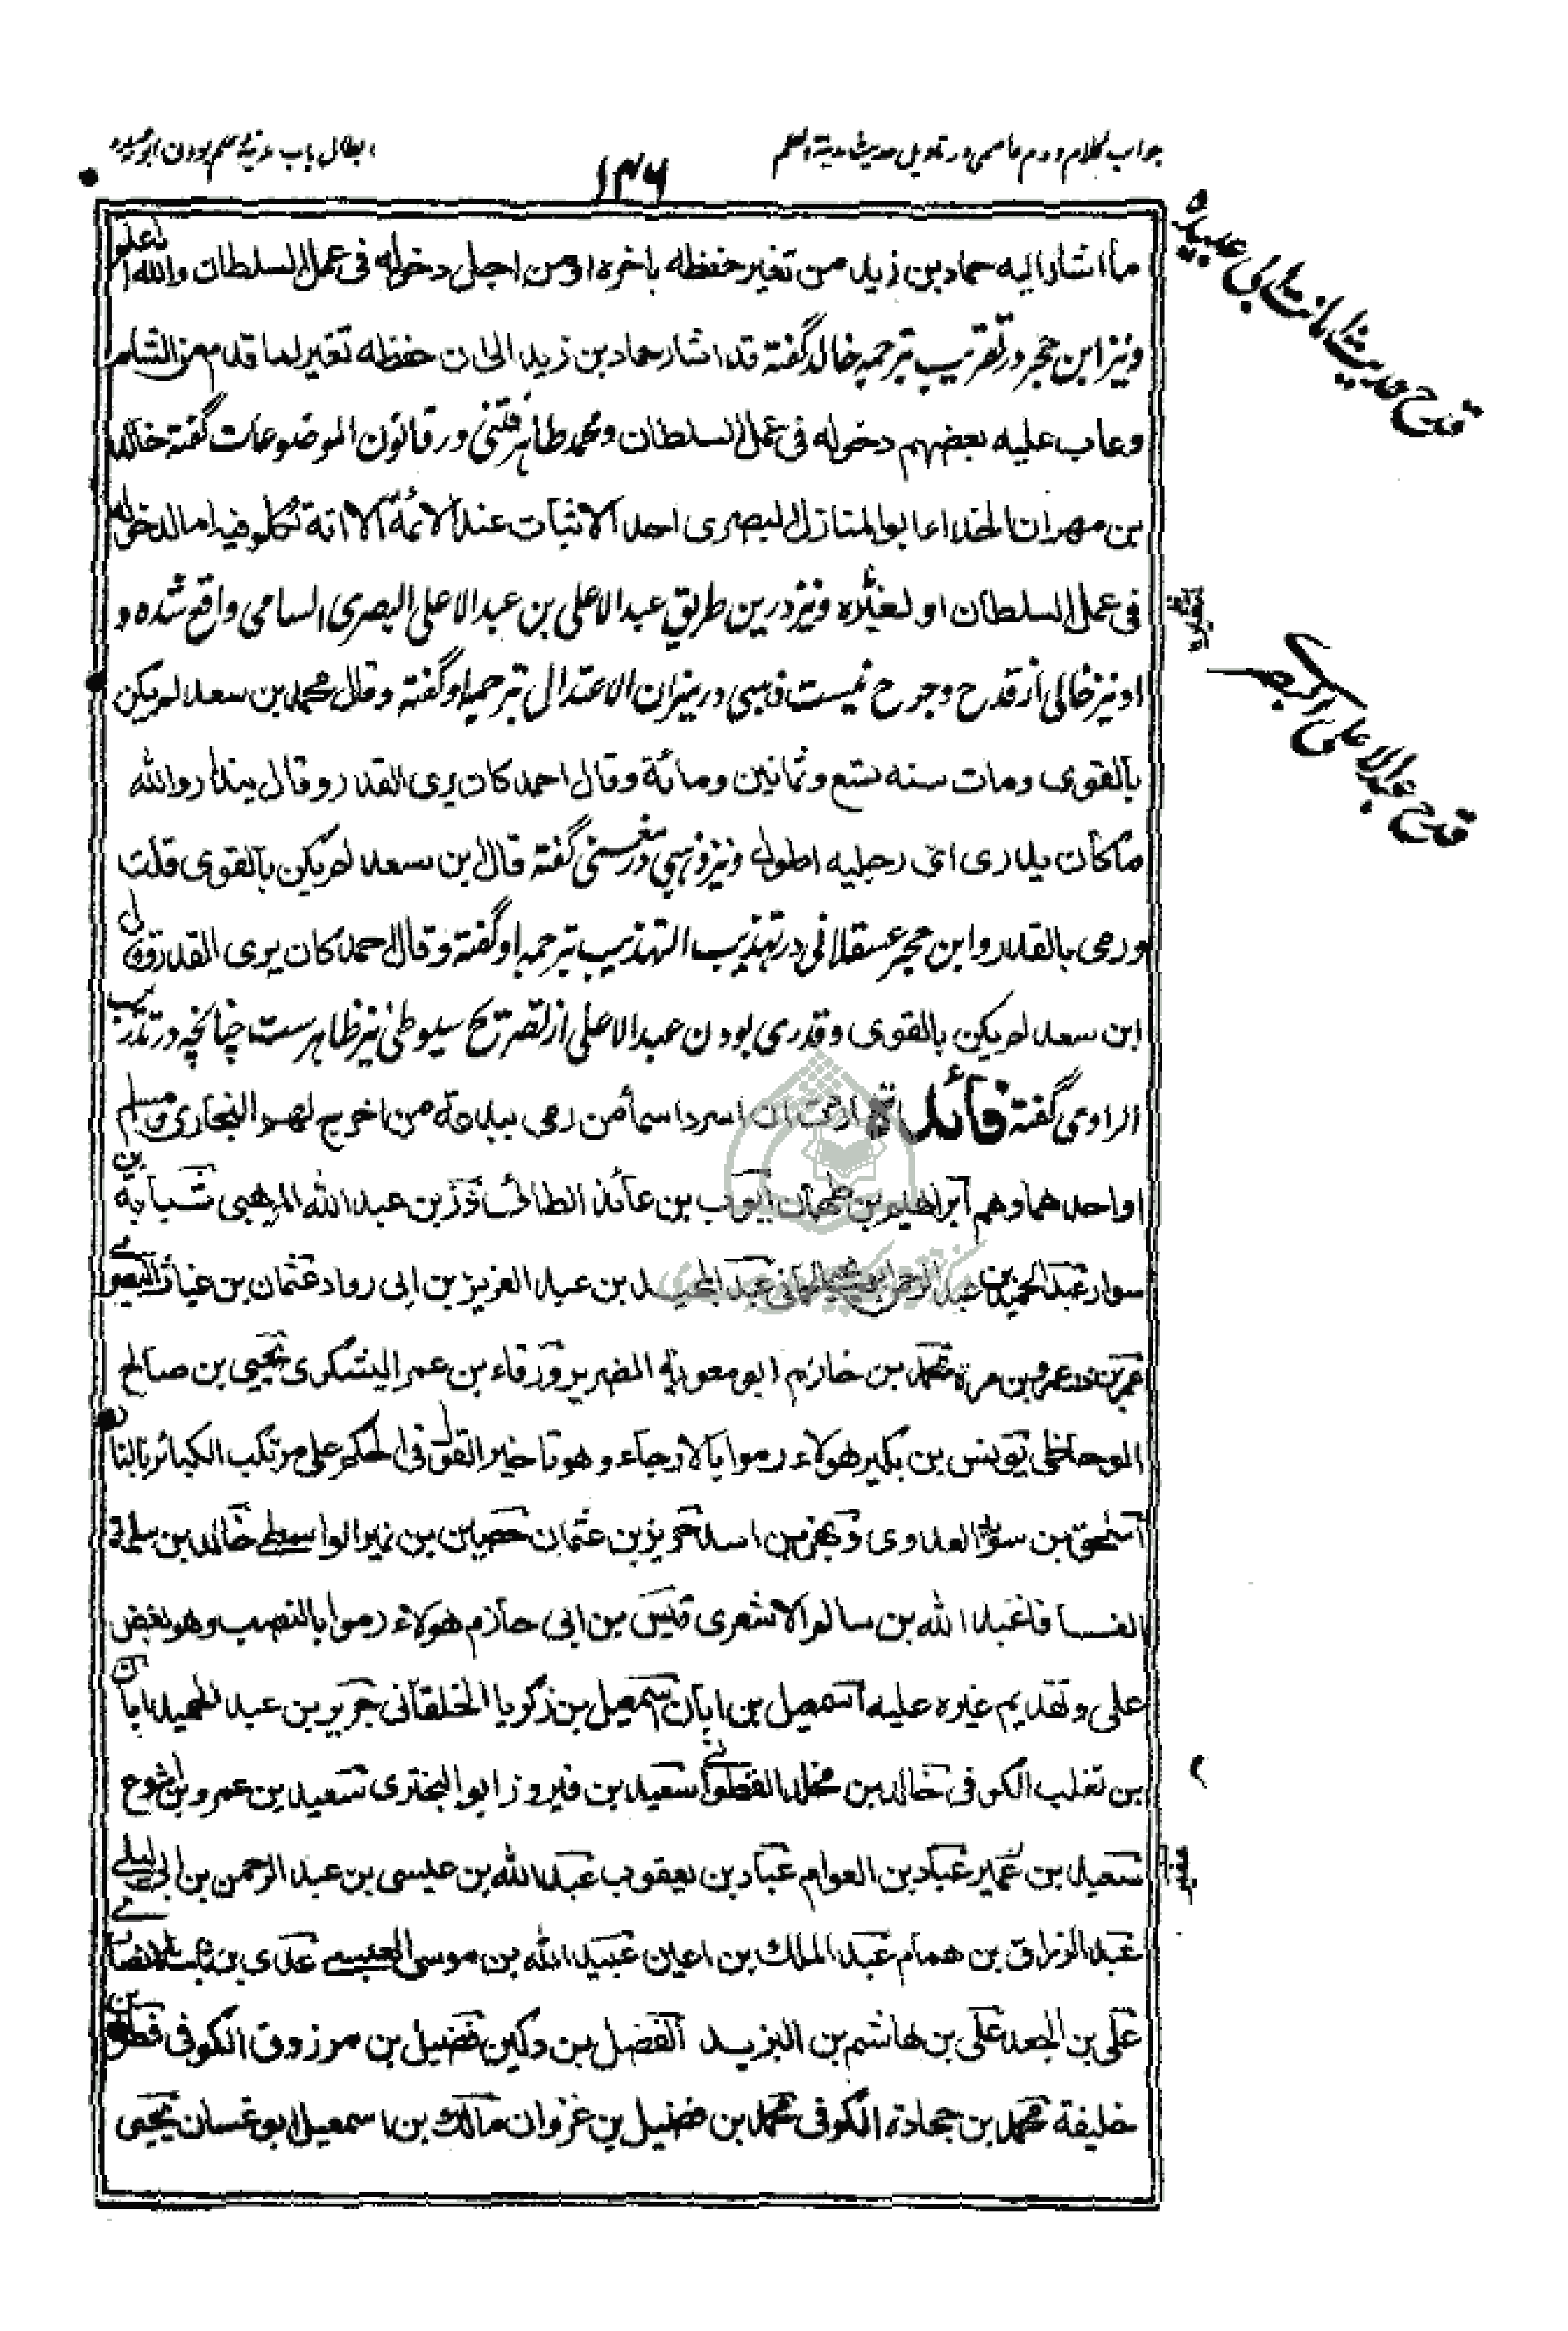 جواب کلام دوم عاصمی در تاویل حدیث مدینة العلم
۱۴۶
ابطال باب مدینهٔ علم بودن ابو عبیده
ما اشار الیه حماد بن زید من تغیر حفظه باخره او من اجل دخوله فی عمل السلطان والله اعلم
و نیز ابن حجر در تقریب بترجمه خالد گفته قد اشار حماد بن زید الی ان حفظه تغیر لما قدم من الشام
و عاب علیه بعضهم دخوله فی عمل السلطان و محمد طاهر فتنی در قانون الموضوعات گفته خالد
بن مهران الحذاء ابو المنازل البصری احد الاثبات عند الائمة الا انه تکلم فیه اما لدخوله
فی عمل السلطان او لغیره و نیز درین طریق عبد الاعلی بن عبد الاعلی البصری السامی واقع شده و
او نیز خالی از قدح و جرح نیست ذهبی در میزان الاعتدال بترجمه او گفته و قال محمد بن سعد لم یکن
بالقوی و مات سنه تسع و ثمانین و مائة و قال احمد کان یری القدر و قال بندار والله
ما کان یدری ای رجلیه اطول و نیز ذهبی در مغنی گفته قال ابن سعد لم یکن بالقوی قلت
و رمی بالقدر و ابن حجر عسقلانی در تهذیب التهذیب بترجمه او گفته و قال احمد کان یری القدر و قال
ابن سعد لم یکن بالقوی و قدری بودن عبد الاعلی از تصریح سیوطی نیز ظاهرست چنانچه در تدریب
الراوی گفته فائدة اردت ان اسرد اسماء من رمی ببدعة من اخرج لهم البخاری و مسلم
او احدهما و هم ابراهیم بن طهمان ایوب بن عائذ الطائی ذر بن عبد الله المرهبی شبابة بن
سوار عبد الحمید بن عبد الرحمن ابو یحیی الحمانی عبد المجید بن عبد العزیز بن ابی رواد عثمان بن غیاث البصری
عمر بن ذر عمرو بن مرة محمد بن خازم ابو معویة الضریر ورقاء بن عمر الیشکری یحیی بن صالح
الوحاظی یونس بن بکیر هولاء رموا بالارجاء و هو تاخیر القول فی الحکم علی مرتکب الکبائر بالنار
اسحق بن سوید العدوی بهز بن اسد حریز بن عثمان حصین بن نمیر الواسطی خالد بن سلمة
الفسافا عبد الله بن سالم الاشعری قیس بن ابی حازم هولاء رموا بالنصب و هو بغض
علی و تقدیم غیره علیه اسمعیل بن ابان اسمعیل بن زکریا الخلقانی جریر بن عبد الحمید ابان
بن تغلب الکوفی خالد بن مخلد القطوانی سعید بن فیروز ابو البختری سعید بن عمرو بن اشوع
سعید بن عمیر عباد بن العوام عباد بن یعقوب عبد الله بن عیسی بن عبد الرحمن بن ابی لیلی
عبد الرزاق بن همام عبد الملک بن اعین عبید الله بن موسی العبسی عدی بن ثابت الانصاری
علی بن الجعد علی بن هاشم بن البزید الفضل بن دکین فضیل بن مرزوق الکوفی فطر بن
خلیفة محمد بن جحادة الکوفی محمد بن فضیل بن غزوان مالک بن اسمعیل ابو غسان یحیی
قدح حدیث امانت ابی عبیده
قدح عبد الاعلی البصری